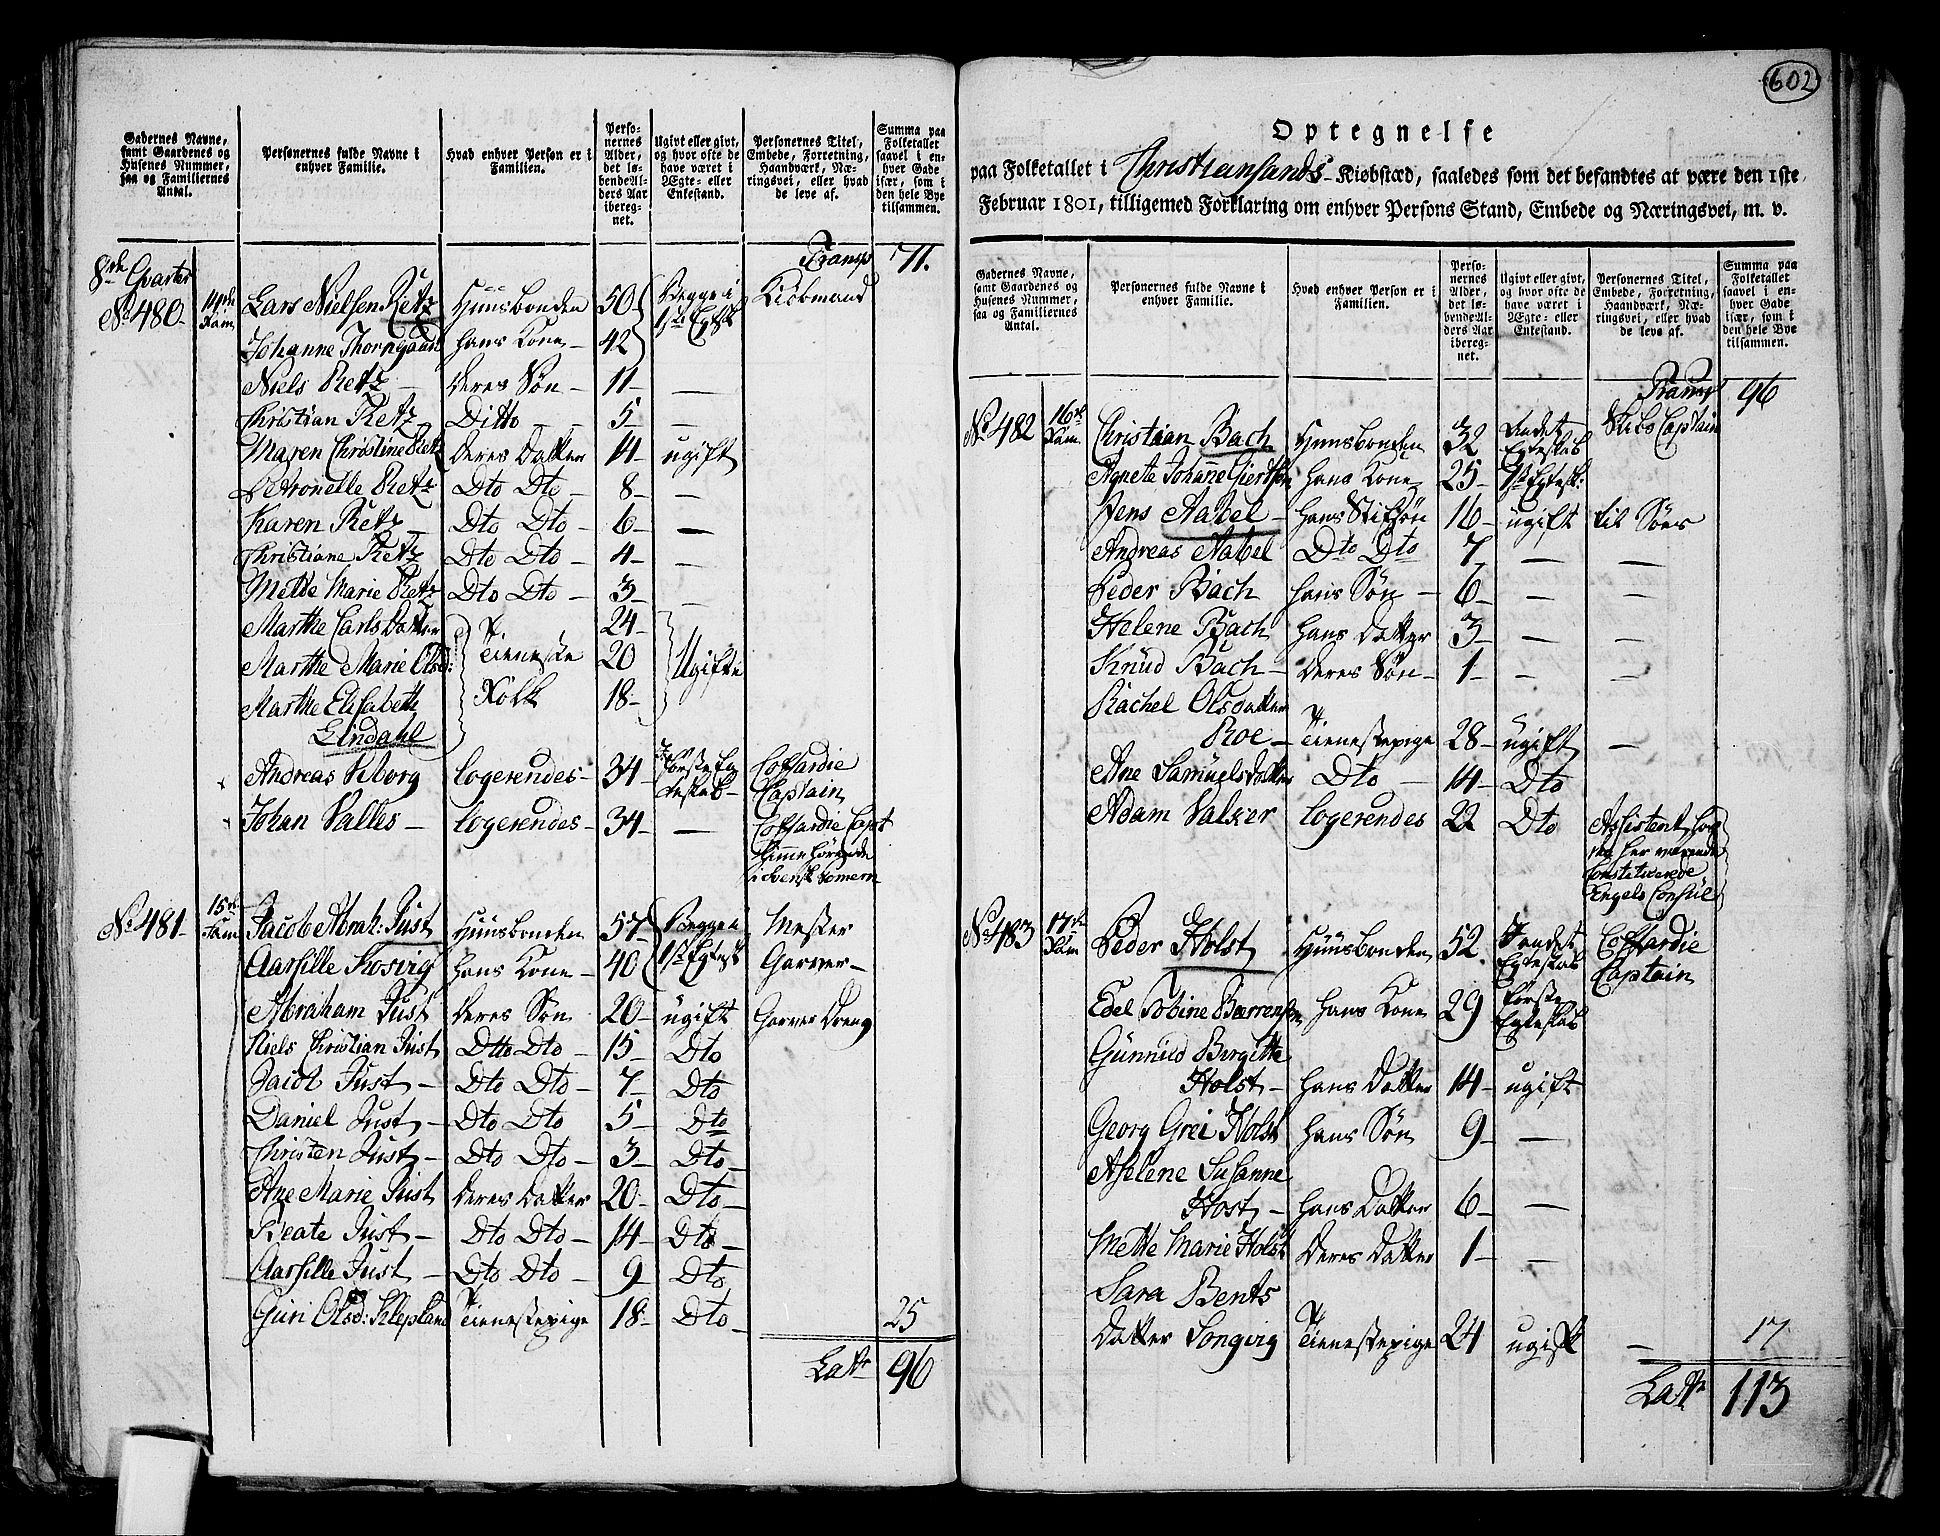 Gadernes Navne, samt Gaardenes og Husenes Nummer, saa og Familiernes Antal.
Personernes fulde Navne i enhver Familie.
Hvad enhver Person er i Familien.
Personernes Alder, det løbende Alders Aar iberegnet.
Ugivt eller givt, og hvor ofte de have været i Ægte- eller Enkestand.
Personernes Titel, Embede, Forretning, Haandværk, Næringsvei, eller hvad de leve af.
Summa paa Folketallet saavel i enhver Gade især, som i den hele Bye tilsammen.
Transp 71.
8de Qvarter
No 480 14de Fam. Lars Nielsen Retz Huusbonden 50 Begge i 1ste Egtsk Kiøbmand
Johanne Thorngaun hans Kone 42
Niels Retz deres Søn 11 —
Christian Retz Ditto 5 —
Maren Christine Retz deres Datter 14 ugift
Petronelle Retz Dto Dto 8 —
Karen Retz Dto Dto 6 —
Christiane Retz Dto Dto 4 —
Mette Marie Retz Dto Dto 3 —
Marthe Carls Datter 24
Marthe Marie Olsd: Tieneste 20 Ugifte
Marthe Elisabeth Folk 18
Lindahl
Andreas Viborg Logerendes 34 Første Egteskab Coffardie Captain
Johan Valles Logerendes 34 — Coffardie Capt
hiemmehørende
i Svensk Pomern
No 481 15de Fam Jacob Abrah: Just Huusbonden 57 Begge i 1ste Egtesk Mester
Aarsille Kosvig hans Kone 40 Garver
Abraham Just deres Søn 20 ugift Garver Dreng
Niels Christian Just Dtto Dto 15 Dto
Jacob Just Dto Dto 7 Dto
Daniel Just Dto Dto 5 Dto
Christen Just Dto Dto 3 Dto
Ane Marie Just deres Datter 20 Dto
Beate Just Dto Dto 14 Dto
Aarsille Just Dto Dto 9 Dto
Guri Olsd: Klepland Tienestepige 18 Dto 25
Latr 96
602
Optegnelse
paa Folketallet i Christiansands Kiøbstæd, saaledes som det befandtes at være den 1ste
Februar 1801, tilligemed Forklaring om enhver Persons Stand, Embede og Næringsvei, m. v.
Gadernes Navne, samt Gaardenes og Husenes Nummer, saa og Familiernes Antal.
Personernes fulde Navne i enhver Familie.
Hvad enhver Person er i Familien.
Personernes Alder, det løbende Alders Aar iberegnet.
Ugivt eller givt, og hvor ofte de have været i Ægte- eller Enkestand.
Personernes Titel, Embede, Forretning, Haandværk, Næringsvei, eller hvad de leve af.
Summa paa Folketallet saavel i enhver Gade især, som i den hele Bye tilsammen.
Transp 96
No 482 16de Fam Christian Bach Huusbonden 32 Andet Egteskab Skibs Captain
Agnete Johanne Giertsen hans Kone 25 1st Egtesk:
Jens Aabel hans Stifsøn 16 ugift til Søes
Andreas Aabel Dto Dto 7 — —
Peder Bach hans Søn 6 — —
Helene Bach hans Datter 3 — —
Knud Bach deres Søn 1 — —
Rachel Olsdatter
Roe Tienestepige 28 ugift —
Ane Samuelsdatter Dto 14 Dto
Adam Valker Logerendes 22 Dto Assistent hos
den her værende
Constituerede
Engels Consul
No 483 17de Fam Peder Holst Huusbonden 52 Andet Egteskab Coffardie Captain
Edel Tobine Børrensen hans Kone 29 første Egteskab
Gunnild Birgitte
Holst hans Datter 14 ugift
Georg Grei Holst hans Søn 9 —
Aselene Susanne
Host hans Datter 6 —
Mette Marie Holst deres Datter 1 —
Sara Bents
Datter Songvig Tienestepige 24 ugift — 17
Latr 113